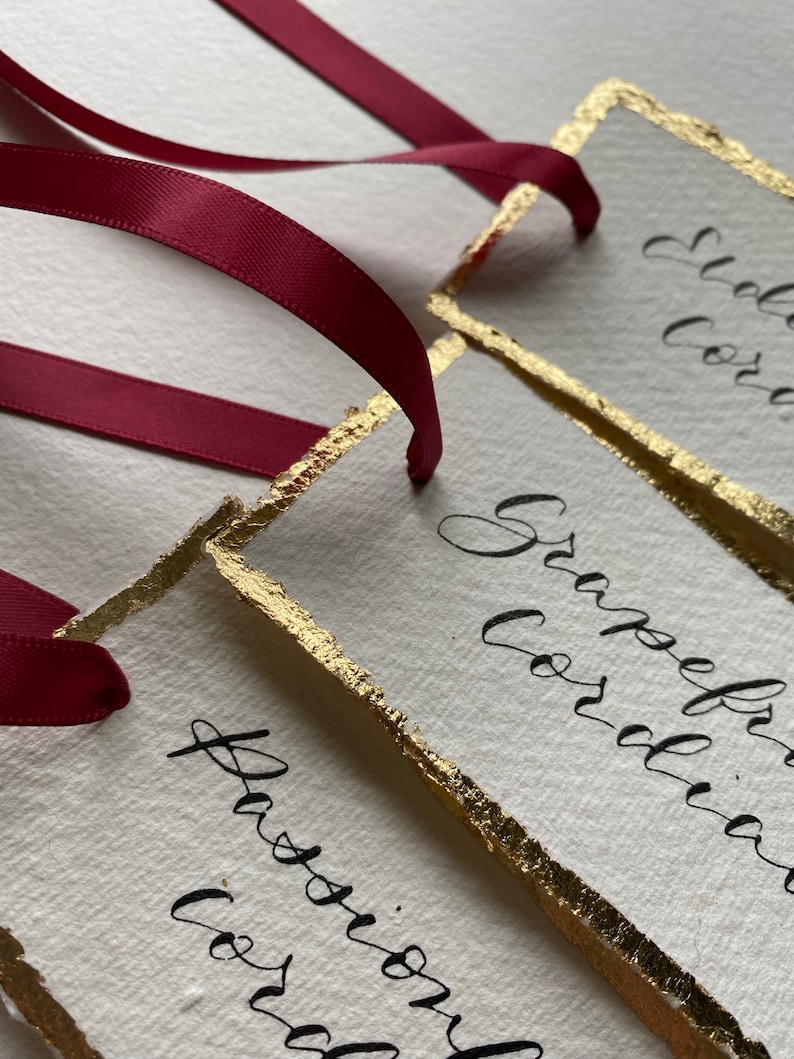 Elde
Cord
Grapefr
Cordia
Passion
Cord